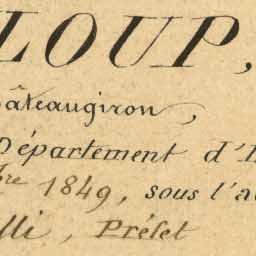 LOUP,
hâteaugiron,
Département d'I
bre 1849, sous l'a
lli, Préfet